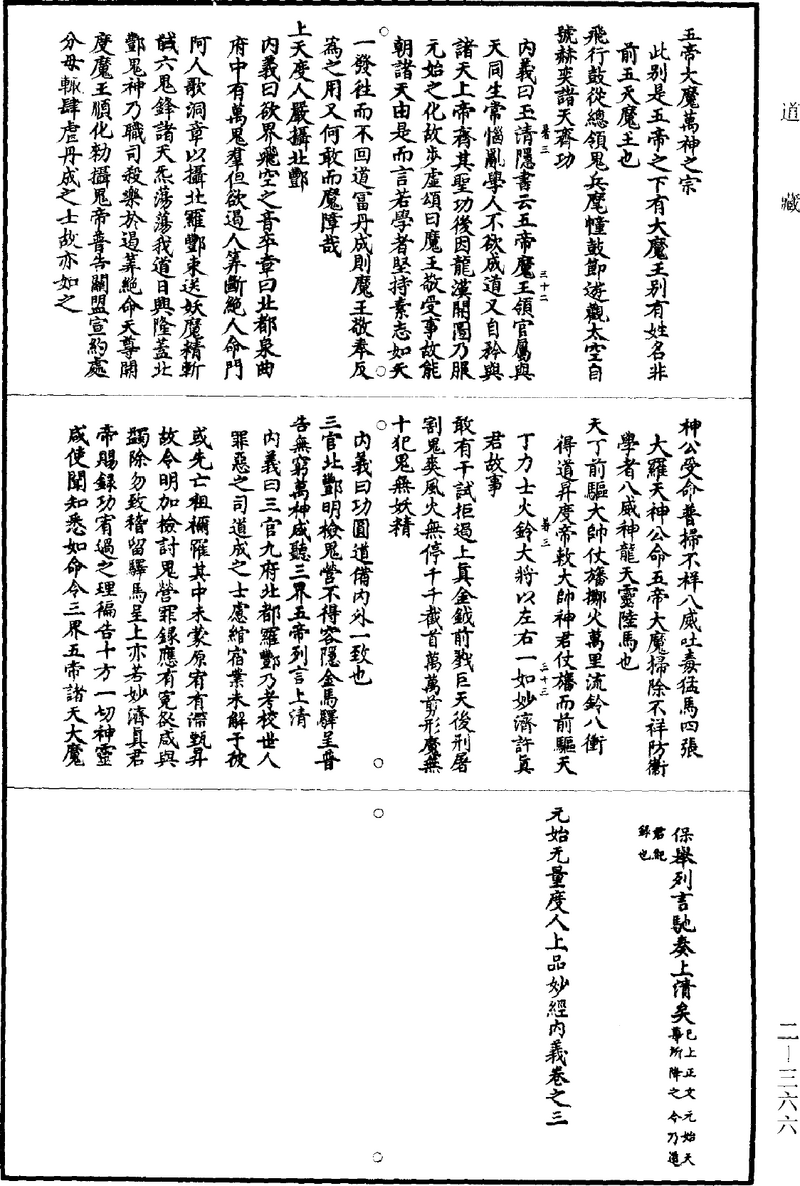 道藏
五帝大魔萬神之宗
此別是五帝之下有大魔王別有姓名非
前五天魔王也
飛行鼓從總領鬼兵麾幢鼓節遊觀太空自
號赫奕諸天齊功
內義曰玉清隱書云五帝魔王領官屬與
天同生常惱亂學人不欲成道又自矜與
諸天上帝齊其聖功後因龍漢開圖乃服
元始之化故步虛頌曰魔王敬受事故能
朝諸天由是而言若學者堅持素志如天
一發往而不回道冨丹成則魔王敬奉反
為之用又何敢而魔障哉
上天度人嚴攝北酆
內義曰欲界飛空之音卒章曰北都泉曲
府中有萬鬼羣但欲遏人筭斷絕人命門
阿人歌洞章以攝北羅酆束送妖魔精斬
馘六鬼鋒諸天炁蕩蕩我道日興隆蓋北
酆鬼神乃職司殺樂於遏筭絕命天尊開
度魔王順化勑攝鬼帝普告關盟宣約處
分毋輒肆虐丹成之士故亦如之
暮三
三十二
神公受命普掃不祥八威吐毒猛馬四張
大羅天神公命五帝大魔掃除不祥防衛
學者八威神龍天靈陸馬也
天丁前驅大帥仗旛擲火萬里流鈴八衝
得道昇度帝敕大帥神君仗旛而前驅天
丁力士火鈴大將以左右一如妙濟許真
君故事
暮三
三十三
敢有干試拒遏上真金鉞前戮巨天後刑屠
割鬼爽風火無停千千截首萬萬剪形魔無
十犯鬼無妖精
內義曰功圓道備內外一致也
三官北酆明檢鬼營不得容隱金馬驛呈普
告無窮萬神咸聽三界五帝列言上清
內義曰三官九府北都羅酆乃考校世人
罪惡之司道成之士慮綰宿業未解于彼
或先亡祖禰罹其中未蒙原宥有滯甄昇
故令明加檢討鬼營罪錄應有冤欲咸與
蠲除勿致稽留驛馬呈上亦若妙濟真君
帝賜錄功宥過之理徧告十方一切神靈
咸使聞知悉如命令三界五帝諸天大魔
保舉列言馳奏上清矣
已上正文元始天
尊所降之令乃道
君記
錄也
元始无量度人上品妙經內義卷之三
二—三六六